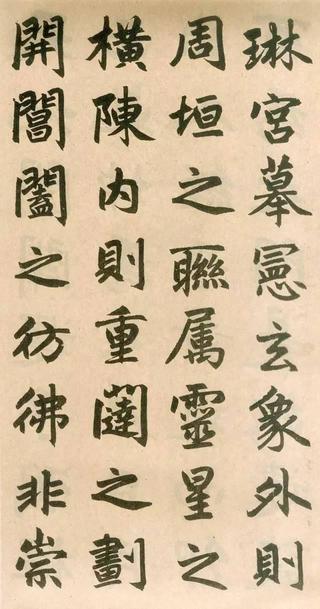 琳宫摹憲玄象外則
周垣之聯属靈星之
橫陳内則重闥之劃
開閶闔之彷彿非崇